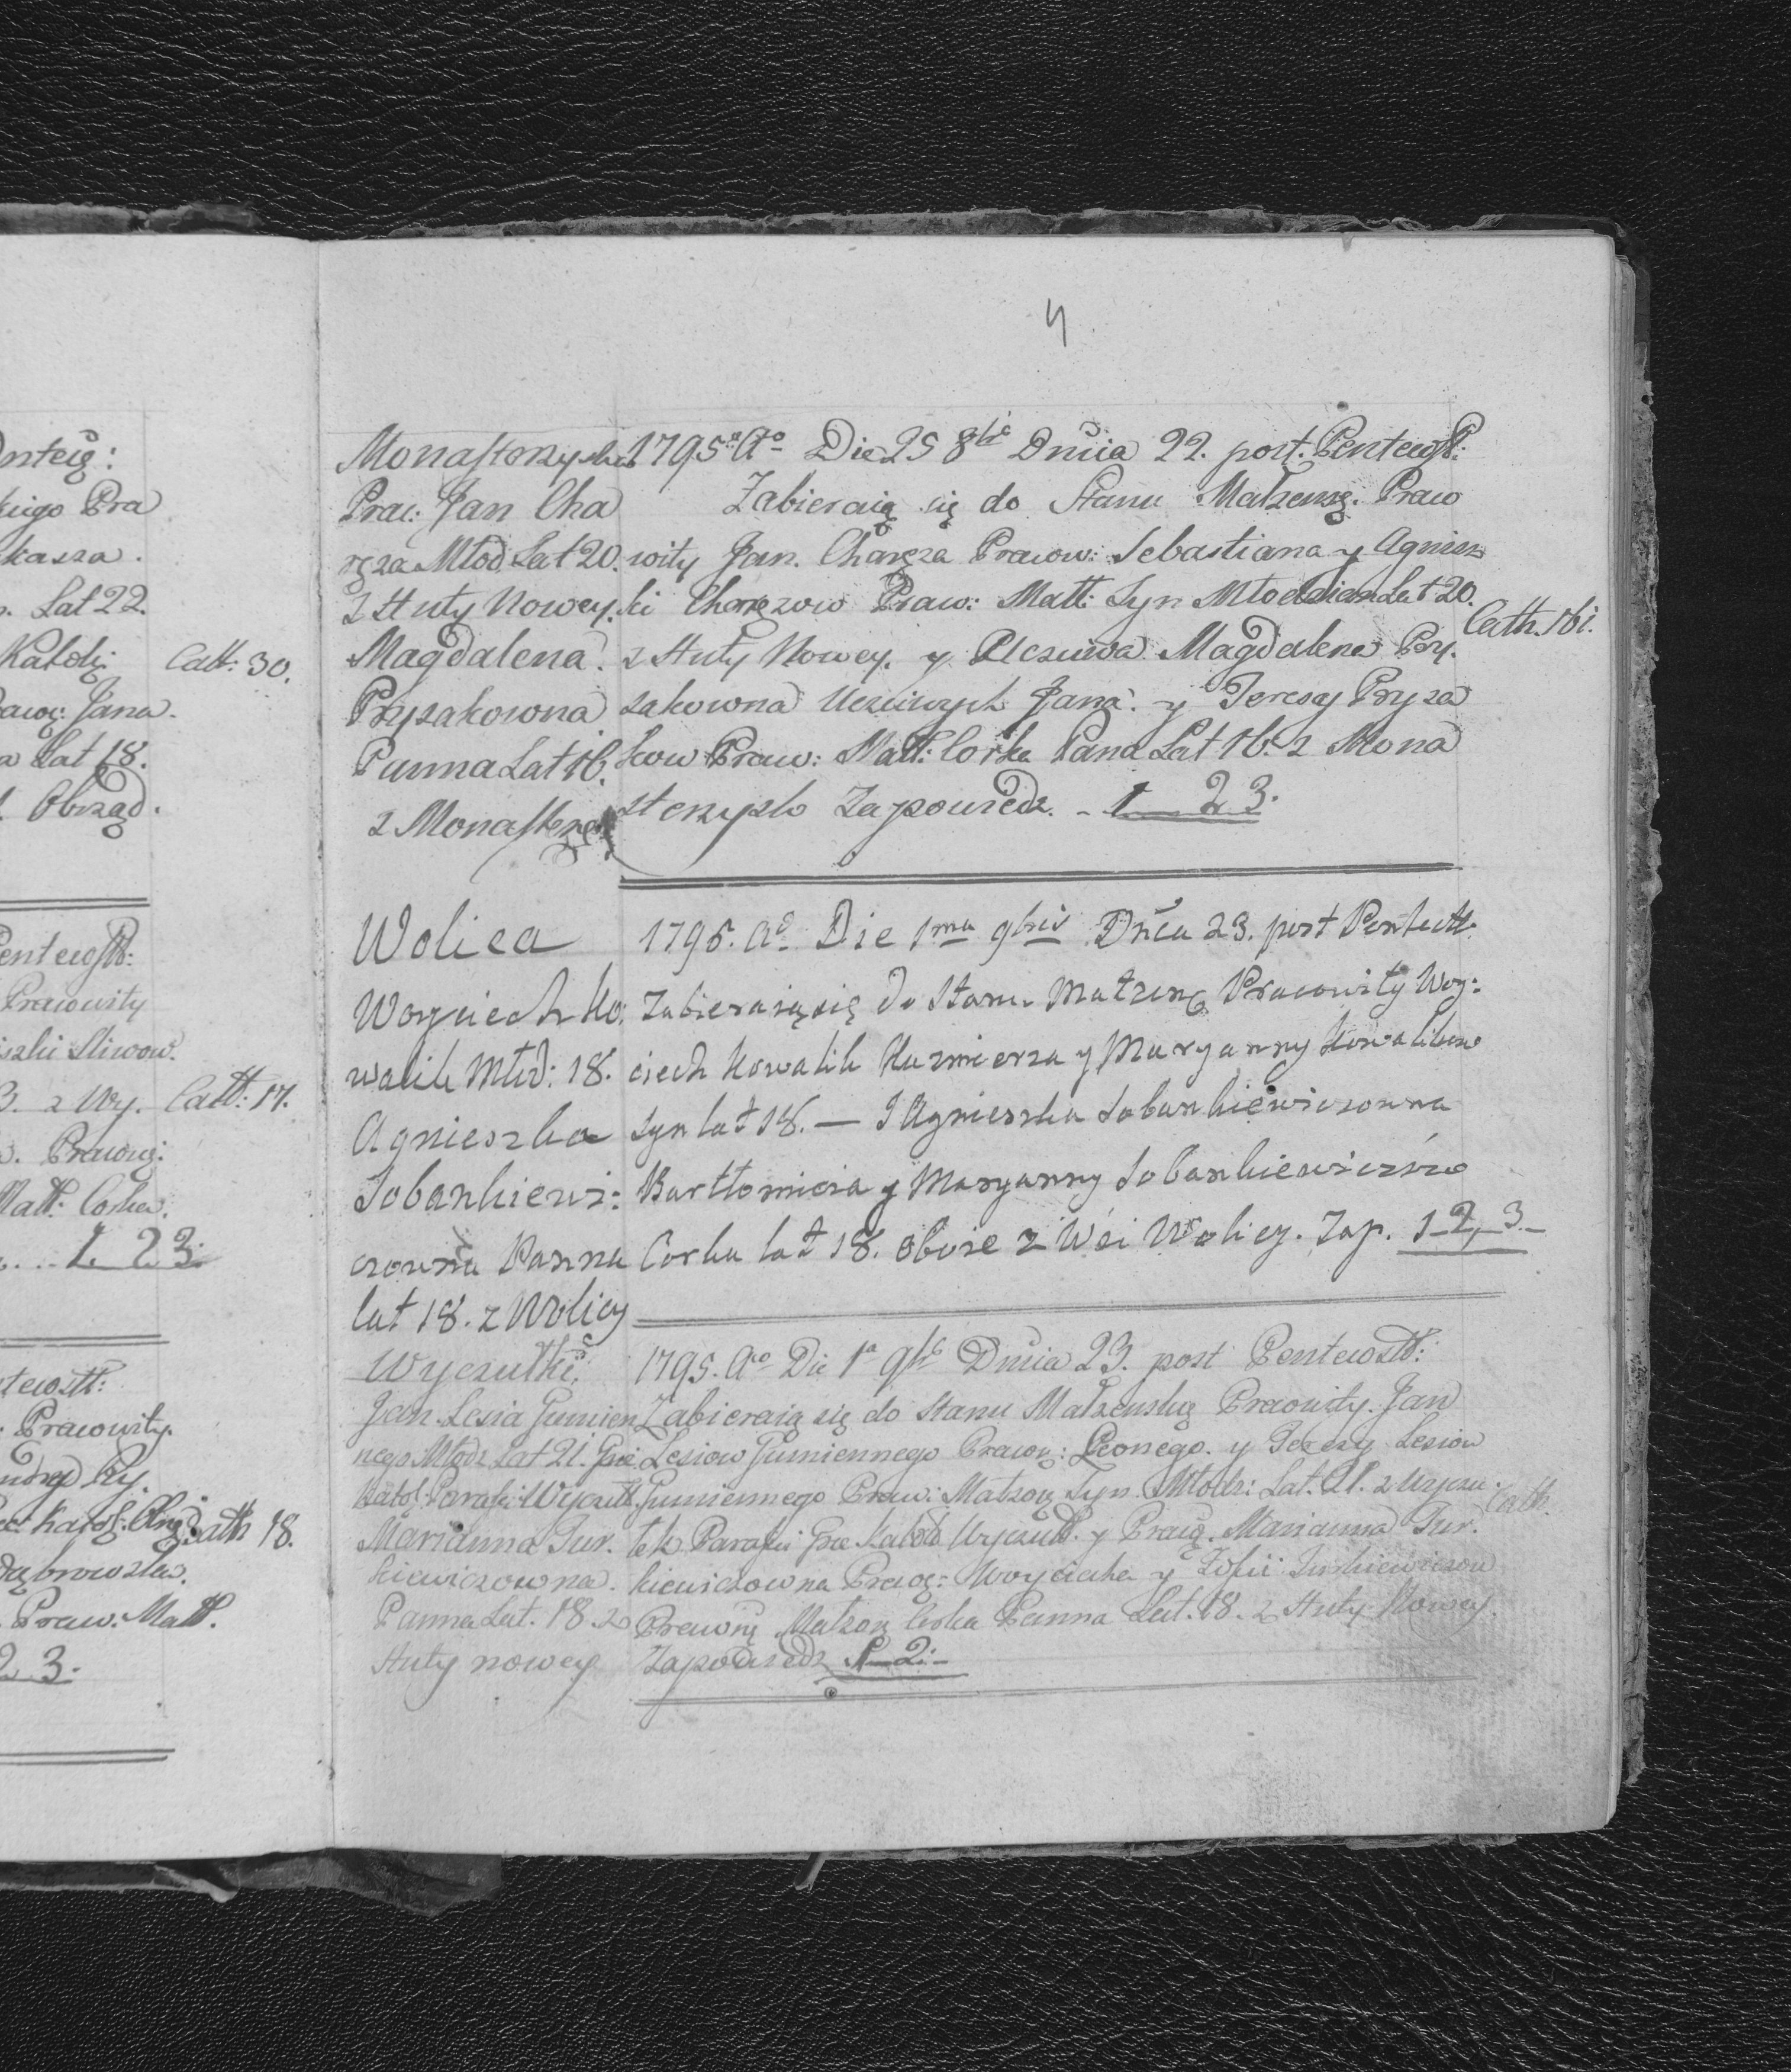 nteig:
kiego Pra
kasza.
Lat 22.
Katoli:
Cath: 30.
Jana.
a Lat 18.
Obrząd.
Pentecost:
Pracowity
iszki Sliwow.
3. z Wy.
Cath: 17.
Matt: Corka.
1. 2 3.
tecost:
Pracowity.
Cath 18.
Dąbrowska.
Praw: Matt.
2 3.
4
Monasterzyska
Prac: Jan Cha
ręza Młod Lat 20.
z Huty Nowey.
Magdalena.
Pryzakowna
Panna Lat 16.
z Monasterz
1795 Ao Die 25 8bris Dnica 22. post. Pentecost:
Zabieraią się do Stanu Matzensg. Praco
wity Jan. Charęza Pracow: Sebastiana y Agnisz
ki Charęzow Praw: Matt: Syn Młodzian Lat 20.
z Huty Nowey. y Uczciwa Magdalena Pry.
zakowna Uczciwych Jana. y Teresy Pryza
kow Praw: Matt: Corka Pana Lat 16. z Mona
sterzysk Zapowiedz. - 1 2 3.
Cath. 16i.
Wolica
Woyciech Ko:
walik Młd: 18.
Agnieszka
Sobankiewi:
czowna Panna
lat 18. z Wolicy
1795. Ao Die 1ma 9bris Dnica 23. post Pentecost
Zabieraią się do Stanu Matzeng Pracowity Woy:
ciech Kowalik Kazmierza y Maryanny Kowalikow
Syn lat 18. — I Agnieszka Sobankiewiczowna
Bartłomieia y Maryanny Sobankiewiczów
Corka lat 18. oboie z Wsi Wolicy. Zap. 1-2, 3.-
Wyczułki.
Jan Lesia Gumien
nego Młodz Lat 21. Grae
Katol: Parafii Wyczułk.
Marianna Jur.
kiewiczowna.
Panna Lat. 18. z
Huty nowey
1795. Ao Die 1a 9bris Dnica 23. post Pentecost:
Zabieraią się do stanu Matzenskig Pracowity. Jan
Lesiow Gumiennego Pracow: Leonego. y Terezy Lesiow
Gumiennego Praw: Matzon Syn Młodz: Lat. 21. z Wyczu.
łek Parafii Grae Katol Wyczułk. y Pracow. Marianna Jur.
kiewiczowna Pracow: Woyciecha y Zofii Jurkiewiczow
Prawny Matzon Corka Panna Lat. 18. z Huty Nowey.
Zapowiedz 1-2.-
Cath.